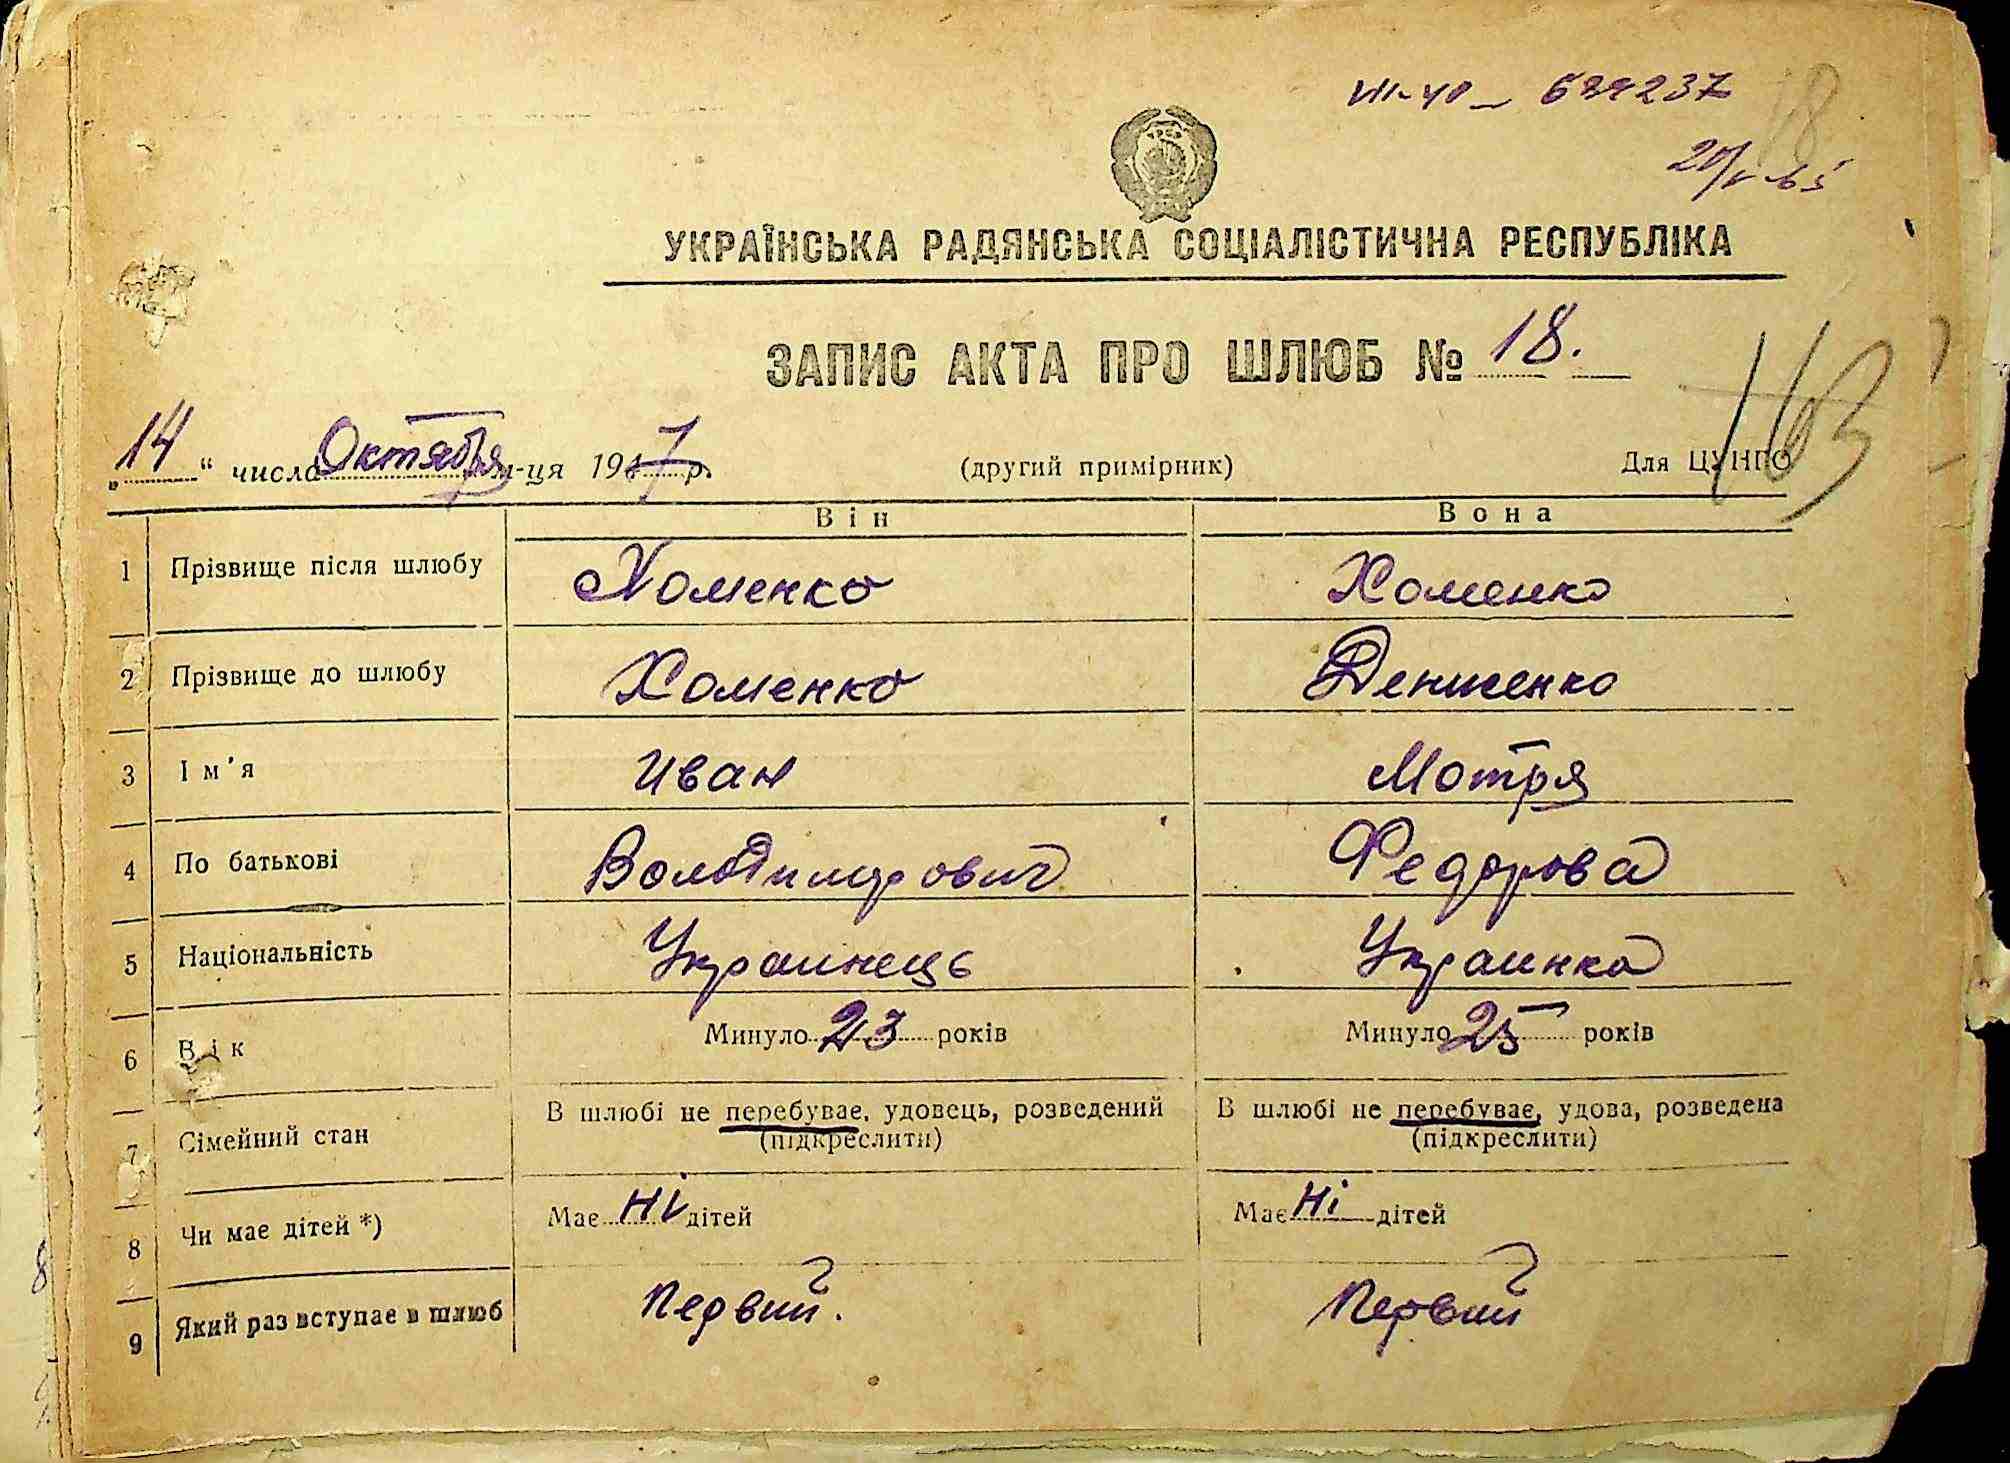 УКРАЇНСЬКА РАДЯНСЬКА СОЦІАЛІСТИЧНА РЕСПУБЛІКА
ЗАПИС АКТА ПРО ШЛЮБ № 18.
163
„14“ числа Октября м-ця 1947 р. (другий примірник) Для ЦУНГО
Він Вона
1 Прізвище після шлюбу Хоменко Хоменко
2 Прізвище до шлюбу Хоменко Денисенко
3 Ім'я Иван Мотря
4 По батькові Володимирович Федорова
5 Національність Украинець Украинка
6 Вік Минуло 23 років Минуло 25 років
7 Сімейний стан В шлюбі не перебуває, удовець, розведений В шлюбі не перебуває, удова, розведена
(підкреслити) (підкреслити)
8 Чи має дітей *) Має Ні дітей Має Ні дітей
9 Який раз вступає в шлюб Первий. Первий